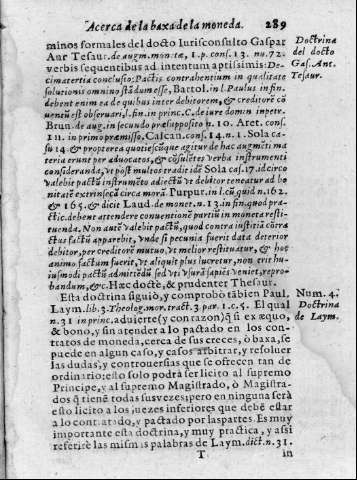 Acerca de la baxa de la moneda. 289
minos formales del docto Iurisconsulto Gaspar
Ant Tesaur. de augm. monetæ, 1. p. cons. 13. nu. 72.
verbis sequentibus ad intentum aptissimis: De-
cimatertia conclusio; Pactis contrahentium in qualitate
solutionis omnino stādum esse, Bartol. in l. Paulus in fin.
debent enim ea de quibus inter debitorem, & creditorē cō
uenū est obseruari, l. fin. in princ. C. de iure domin impetr.
Brun. de aug. in secundo præsupposito n. 10. Aret. cons.
11. in primo præmisso, Calcan. cons. 14. n. 1. Sola ca-
su 14. & propterea quotiescūque agitur de hac augmēti ma
teria erunt per aduocatos, & cōsulētes verba instrumenti
consideranda, vt post multos tradit idē Sola cas. 17. id circo
valebit pactū instrumēto adiectū vt debitor teneatur ad bo
nitatē extrinsecā circa morā. Purpur. in l. cū quid n. 162.
& 165. & dicit Laud. de monet. n. 13. in fin. quod prac-
tic. debent attendere conuentionē partiū in moneta resti-
tuenda. Non autē valebit pactū, quod contra iustitiā cōtra
ctus factū apparebit, vnde si pecunia fuerit data deterior
debitor, per creditorē mutuo, vt melior restituatur, & hoc
animo factum fuerit, vt aliquit plus lucretur, non erit hu
iusmodi pactū admitēdū sed vti vsurā sapiēs veniet, repro-
bandum, &c. Hæc doctè, & prudenter Thesaur.
Esta doctrina siguiò, y comprobò tābien Paul,
Laym. lib. 3. Theolog. mor. tract. 3. par. 1. c. 5. El qual
n. 31 in princ. aduierte (y conrazon) q̄ si ex æquo,
& bono, y sin atender a lo pactado en los con-
tratos de moneda, cerca de sus creces, ò baxa, se
puede en algun caso, y casos arbitrar, y resoluer
las dudas, y controuersias que se ofrecen tan de
ordinario; esto solo podrà ser licito al supremo
Principe, y al supremo Magistrado, ò Magistra-
dos q̄ tienē todas sus vezes; pero en ninguna serà
esto licito a los juezes inferiores que debē estar
a lo contratado, y pactado por las partes. Es muy
importante esta doctrina, y muy practica, y assi
referirè las mismas palabras de Laym. dict. n. 31.
T in
Doctrina
del docto
Gas. Ant.
Tesaur.
Num. 4.
Doctrina
de Laym.